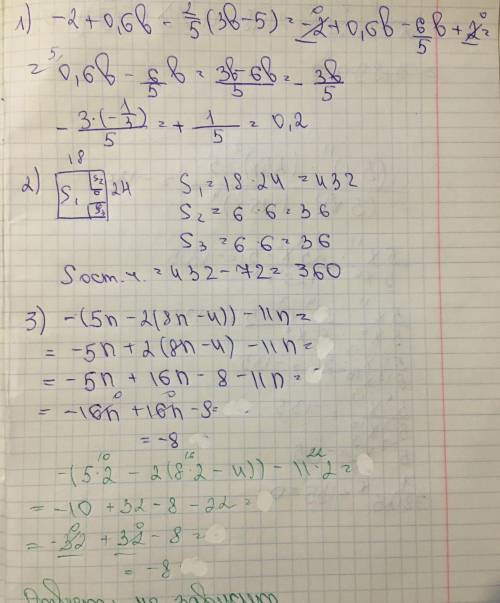 1) -2 + 0,6b - 2/5 (3b - 5) = -2 + 0,6b - 6/5 b + 2 =
= 0,6b - 6/5 b = (3b - 6b)/5 = - 3b/5
- (3·(-1/3))/5 = + 1/5 = 0,2
18
2) S₁ S₂ 6 S₃ 24 S₁ = 18·24 = 432
S₂ = 6·6 = 36
S₃ = 6·6 = 36
Sост.ч. = 432 - 72 = 360
3) -(5n - 2(8n - 4)) - 11n =
= -5n + 2(8n - 4) - 11n =
= -5n + 16n - 8 - 11n =
= -16n + 16n - 8 =
= -8
-(5·2 - 2(8·2 - 4)) - 11·2 =
= -10 + 32 - 8 - 22 =
= -32 + 32 - 8 =
= -8
Ответ: не зависит